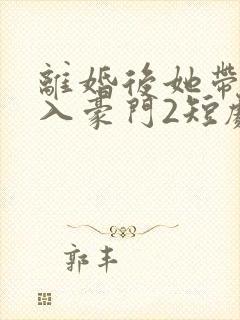 離婚後她帶
入豪門2短劇
郭丰